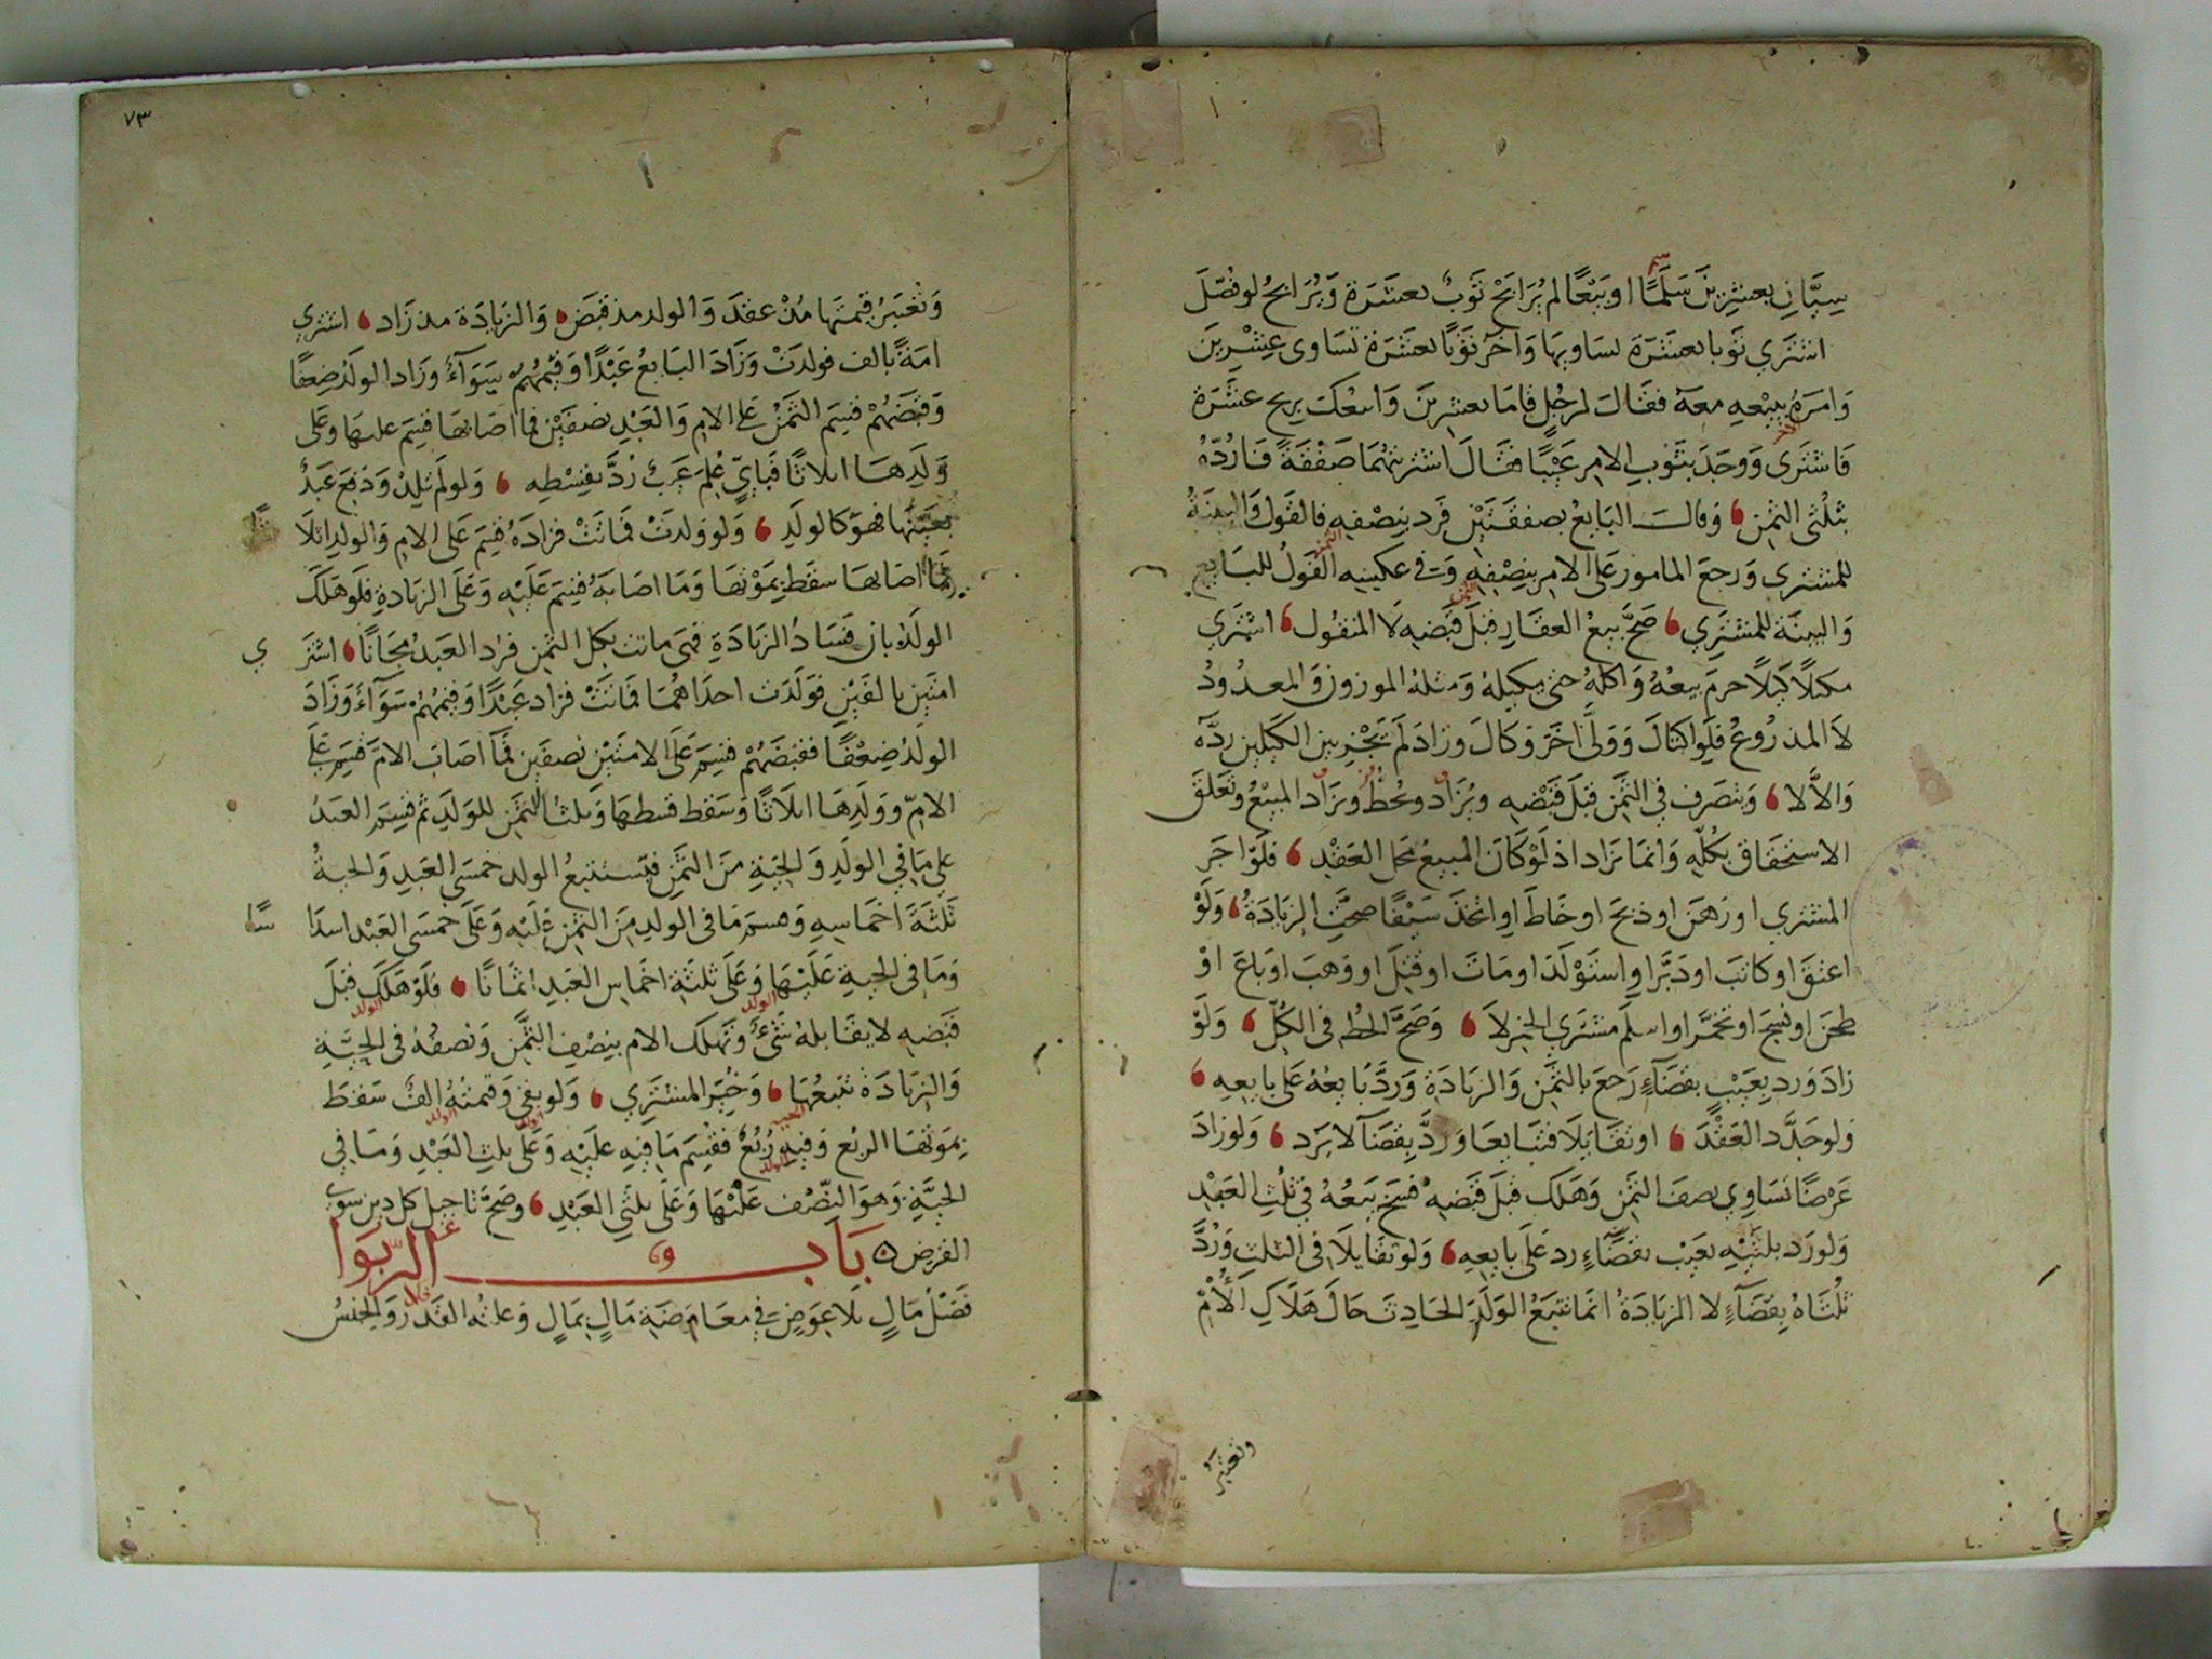 سيان بعشرين سلما او بيعا لم يرابح ثوب بعشرة ويرابح لو فصل
اشترى ثوبا بعشرة تساويها واخر ثوبا بعشرة تساوى عشرين
وامره ببيعه معه فقال لرجل قاما بعشرين وابيعك بربح عشرة
فاشترى ووجد بثوب الامر عيبا فقال اشتريتهما صفقة فاردّه
بثلثى الثمن وقال البايع بصفقتين فرد بنصفه فالقول والبينة
للمشترى ورجع المامور على الامر بنصفه وفى عكسه القول للبايع
والبينة للمشتري صح بيع العقار قبل قبضه لا المنقول اشتري
مكيلا كيلا حرم بيعه واكله حتى يكيله ومثله الموزون والمعدود
لا المذروع فلو اكتال وولى اخر وكال وزاد لم يجز بين الكيلين ردّه
والا لا وتصرف في الثمن قبل قبضه ويزاد ويحط ويزاد المبيع وتعلق
الاستحقاق بكله وانما يزاد اذ لو كان المبيع محل العقد فلو اجر
المشترى او رهن او ذبح او خاط او اتخذ سيفا صحت الزيادة ولو
اعتق او كاتب او دبّر او استولد او مات او قتل او وهب او باع او
طحن او نسج او تخمّر او اسلم مشترى الخمر لا وصح الحط في الكل ولو
زاد ورد بعيب بقضآء رجع بالثمن والزيادة وردّ بايعه على بايعه
ولو جدّد العقد او تقايلا فتبايعا وردّ بقضآ لا يرد ولو زاد
عرضا تساوي نصف الثمن وهلك قبل قبضه فسخ بيعه في ثلث العبد
ولو رد بلثيه بعيب بقضاء رد على بايعه ولو تقايلا فى الثلث وردّ
ثلثاه بقضآء لا الزيادة انما تتبع الولد الحادث حال هلاك الأم
وتعتبر
٧٣
وتعتبر قيمتها مذ عقد والولد مذ قبض والزيادة مذ زاد اشترى
امة بالف فولدت وزاد البايع عبدا وقيمهم سوآء وزاد الولد ضعفا
وقبضهم قسم الثمن على الام والعبد نصفين فما اصابها قسم عليها وعلى
ولدها اثلاثا فبايّ علم عيب ردّ بقسطه ولو لم تلد وذهب عيد
بعينها فهو كالولد ولو ولدت فماتت فزاده قسم على الام والولد اثلا
ثا
فما اصابها سقط بموتها وما اصابه قسم عليه وعلى الزيادة فلو هلك
الولد بان فساد الزيادة فهى ماتت بكل الثمن فرد العبد مجانا اشتر
ي
امتين بالفين فولدت احداهما فماتت فزاد عبدا وقيمهم سوآء وزاد
الولد ضعفا فقبضهم قسم على الامتين نصفين فما اصاب الام قسم على
الام وولدها اثلاثا وسقط قسطها وثلثا الثمن للولد ثم قسم العبد
على ما في الولد والحية من الثمن فتستتبع الولد خمسى العبد والحية
ثلثة اخماسه وقسم ما فى الولد من الثمن عليه وعلى خمسى العبد اسدا
سا
وما فى الحية عليها وعلى ثلثة اخماس العبد اثمانا فلو هلك قبل
قبضه لا يقابله شئ وتهلك الام بنصف الثمن ونصفه فى الحيّة
والزيادة تتبعها وخير المشتري ولو بقى وقيمته الف سقط
بموتها الربع وفيه ربع فقسم ما فيه عليه وعلى ثلث العبد وما في
الحيّة وهو النصف عليها وعلى ثلثي العبد وصح تاجيل كل دين سوى
القرض باب الربوا
فضل مال بلا عوض في معاوضة مال بمال وعلته القدر والجنس